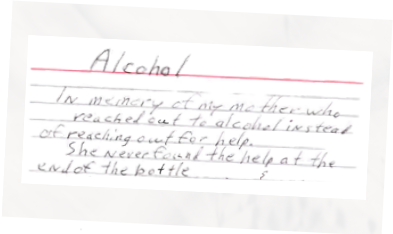 Alcohol
In memory of my mother who
reached out to alcohol instead
of reaching out for help.
She never found the help at the
end of the bottle